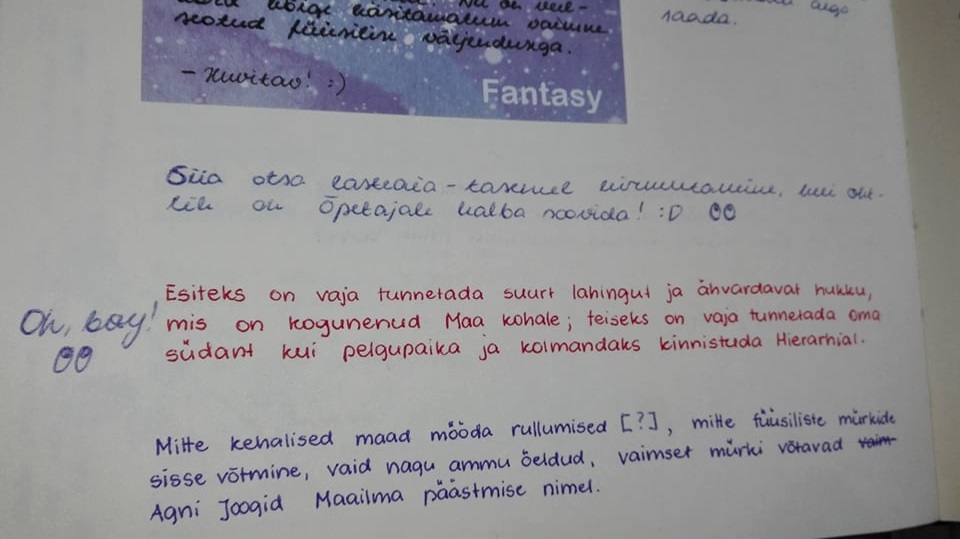 saada.
füüsilise väljendusga.
- Huvitav! :)
Fantasy
Siia otsa lasteaia-tasemel hirmutamine, kui oht-
lik on Õpetajale halba soovida! :D
Oh, boy!
Esiteks on vaja tunnetada suurt lahingut ja ähvardavat hukku,
mis on kogunenud Maa kohale; teiseks on vaja tunnetada oma
südant kui pelgupaika ja kolmandaks kinnistuda Hierarhial.
Mitte kehalised maad mööda rullumised [?], mitte füüsiliste mürkide
sisse võtmine, vaid nagu ammu öeldud, vaimset mürki võtavad vaim-
Agni Joogid Maailma päästmise nimel.